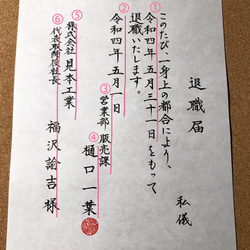 退職届
私儀
このたび一身上の都合により、
①令和四年五月三十一日をもって
退職いたします。
②令和四年五月一日
③営業部 販売課
④樋口一葉
⑤株式会社見本工業
⑥代表取締役社長
福沢諭吉様